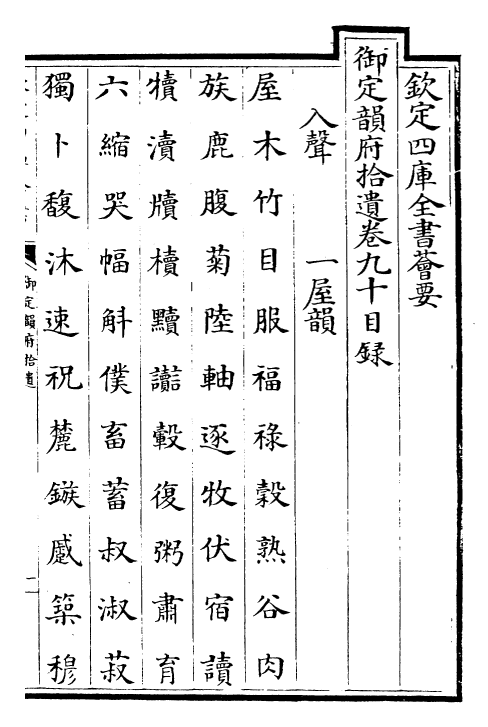 欽定四庫全書薈要
御定韻府拾遺卷九十目録
入聲 一屋韻
屋木竹目服福祿穀熟谷肉
族鹿腹菊陸軸逐牧伏宿讀
犢瀆牘櫝黷讟轂復粥肅育
六縮哭幅斛僕畜蓄叔淑菽
獨卜馥沐速祝麓鏃蹙築穆
御定韻府拾遺
一